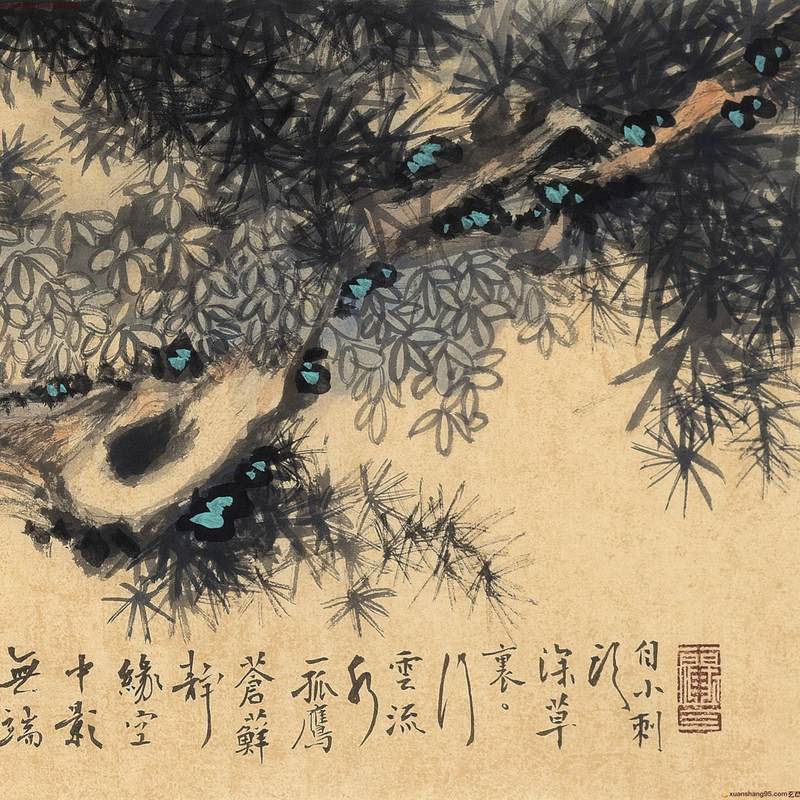 自小刺
頭
深草
裏。
行
雲流
水
孤鷹
蒼蘚
靜
緣空
中影
無端
xuanshang95.com